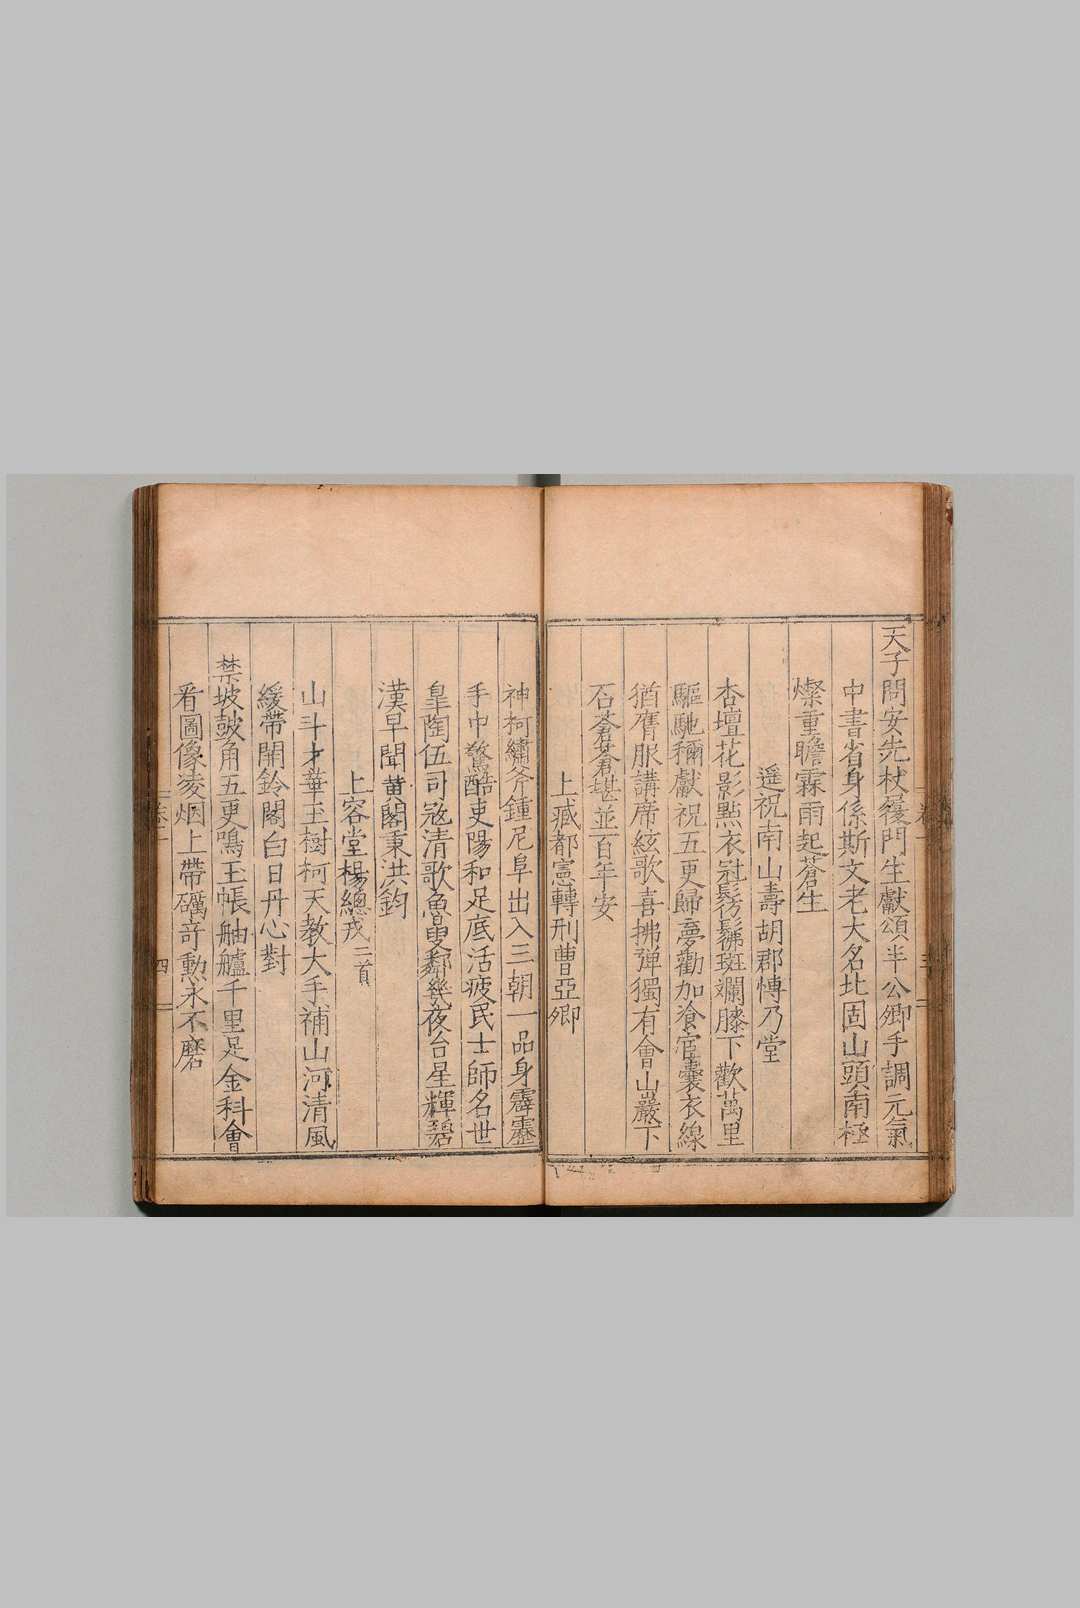 天子問安先杖履門生獻頌半公卿手調元氣
中書省身係斯文老大名北固山頭南極
燦重瞻霖雨起蒼生
遥祝南山壽胡郡博乃堂
杏壇花影點衣冠髣髴斑斕膝下歡萬里
驅馳稱獻祝五更歸夢勸加飡宦囊衣線
猶膺服講席絃歌喜拂彈獨有會山巖下
石蒼蒼堪並百年安
上臧都憲轉刑曹亞卿
神柯繡斧鍾尼阜出入三朝一品身霹靂
手中驚酷吏陽和足底活疲民士師名世
皐陶伍司冦清歌魚曼鄰幾夜台星輝碧
漢早聞黄閣秉洪鈞
上容堂楊總戎二首
山斗才華玉樹柯天教大手補山河清風
緩帶開鈴閣白日丹心對
禁坡鼓角五更鳴玉帳舳艫千里足金科會
看圖像凌烟上帶礪竒勲永不磨
四